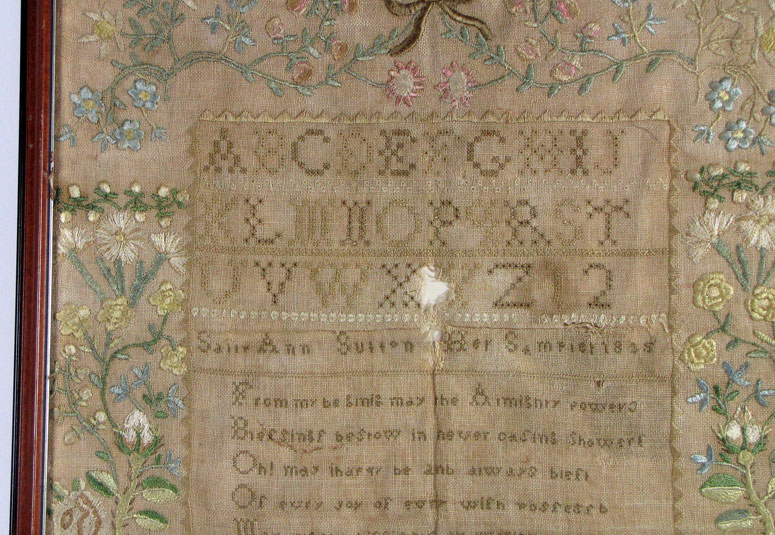 A B C D E F G H I J
K L M N O P Q R S T
U V W X Y Z 1 2
Sally Ann Sutton Her Sampler 1825
From my begining may the Almighty powers
Blessings bestow in never ceasing showers
Oh! may I happy be and always blest
Of every joy of every wish possessed